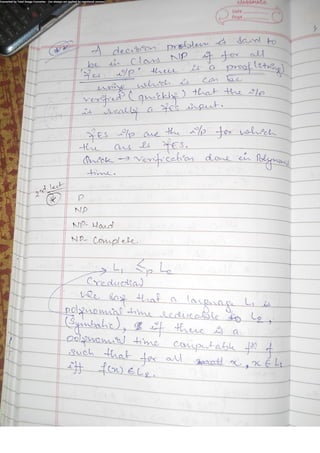 classmate
Date
Page
A decision problem is said to
be in Class NP if for all
Yes i/p there is a proof (string)
using which it can be
verified (quickly) that the i/p
is really a YES input.
YES i/p are the i/p for which
the ans is YES.
Quick → verification done in Polynomial
time.
2nd last
P
NP
NP-Hard
NP-Complete.
L1 ≤p L2
(reduction)
We say that a language L1 is
polynomial time reducable to L2,
(symbolic), if there is a
polynomial time computable fn f
such that for all x, x ∈ L1
iff f(x) ∈ L2.